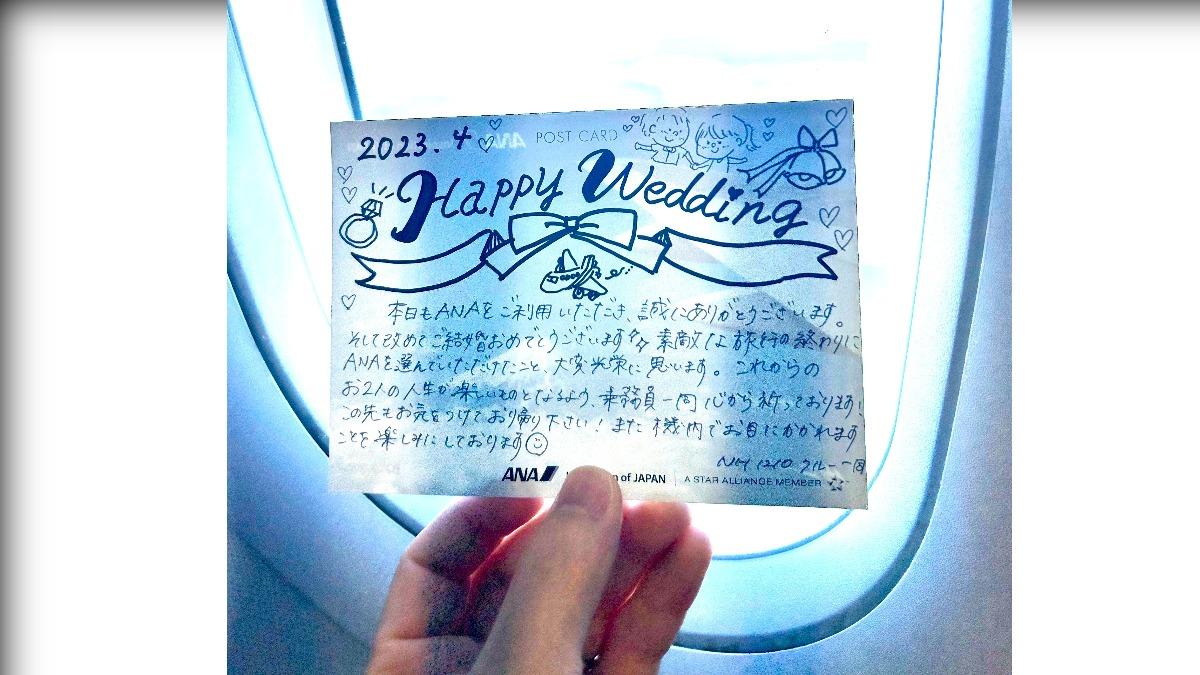 2023. 4
POST CARD
Happy Wedding
本日もANAをご利用いただき、誠にありがとうございます。
そして改めてご結婚おめでとうございます 素敵な旅行の終わりに
ANAを選んでいただけたこと、大変光栄に思います。これからの
お2人の人生が楽しいものとなるよう、乗務員一同心から祈っております!
この先もお気をつけてお帰り下さい!また機内でお目にかかれます
ことを楽しみにしております
NH1210 クルー一同
ANA of JAPAN A STAR ALLIANCE MEMBER